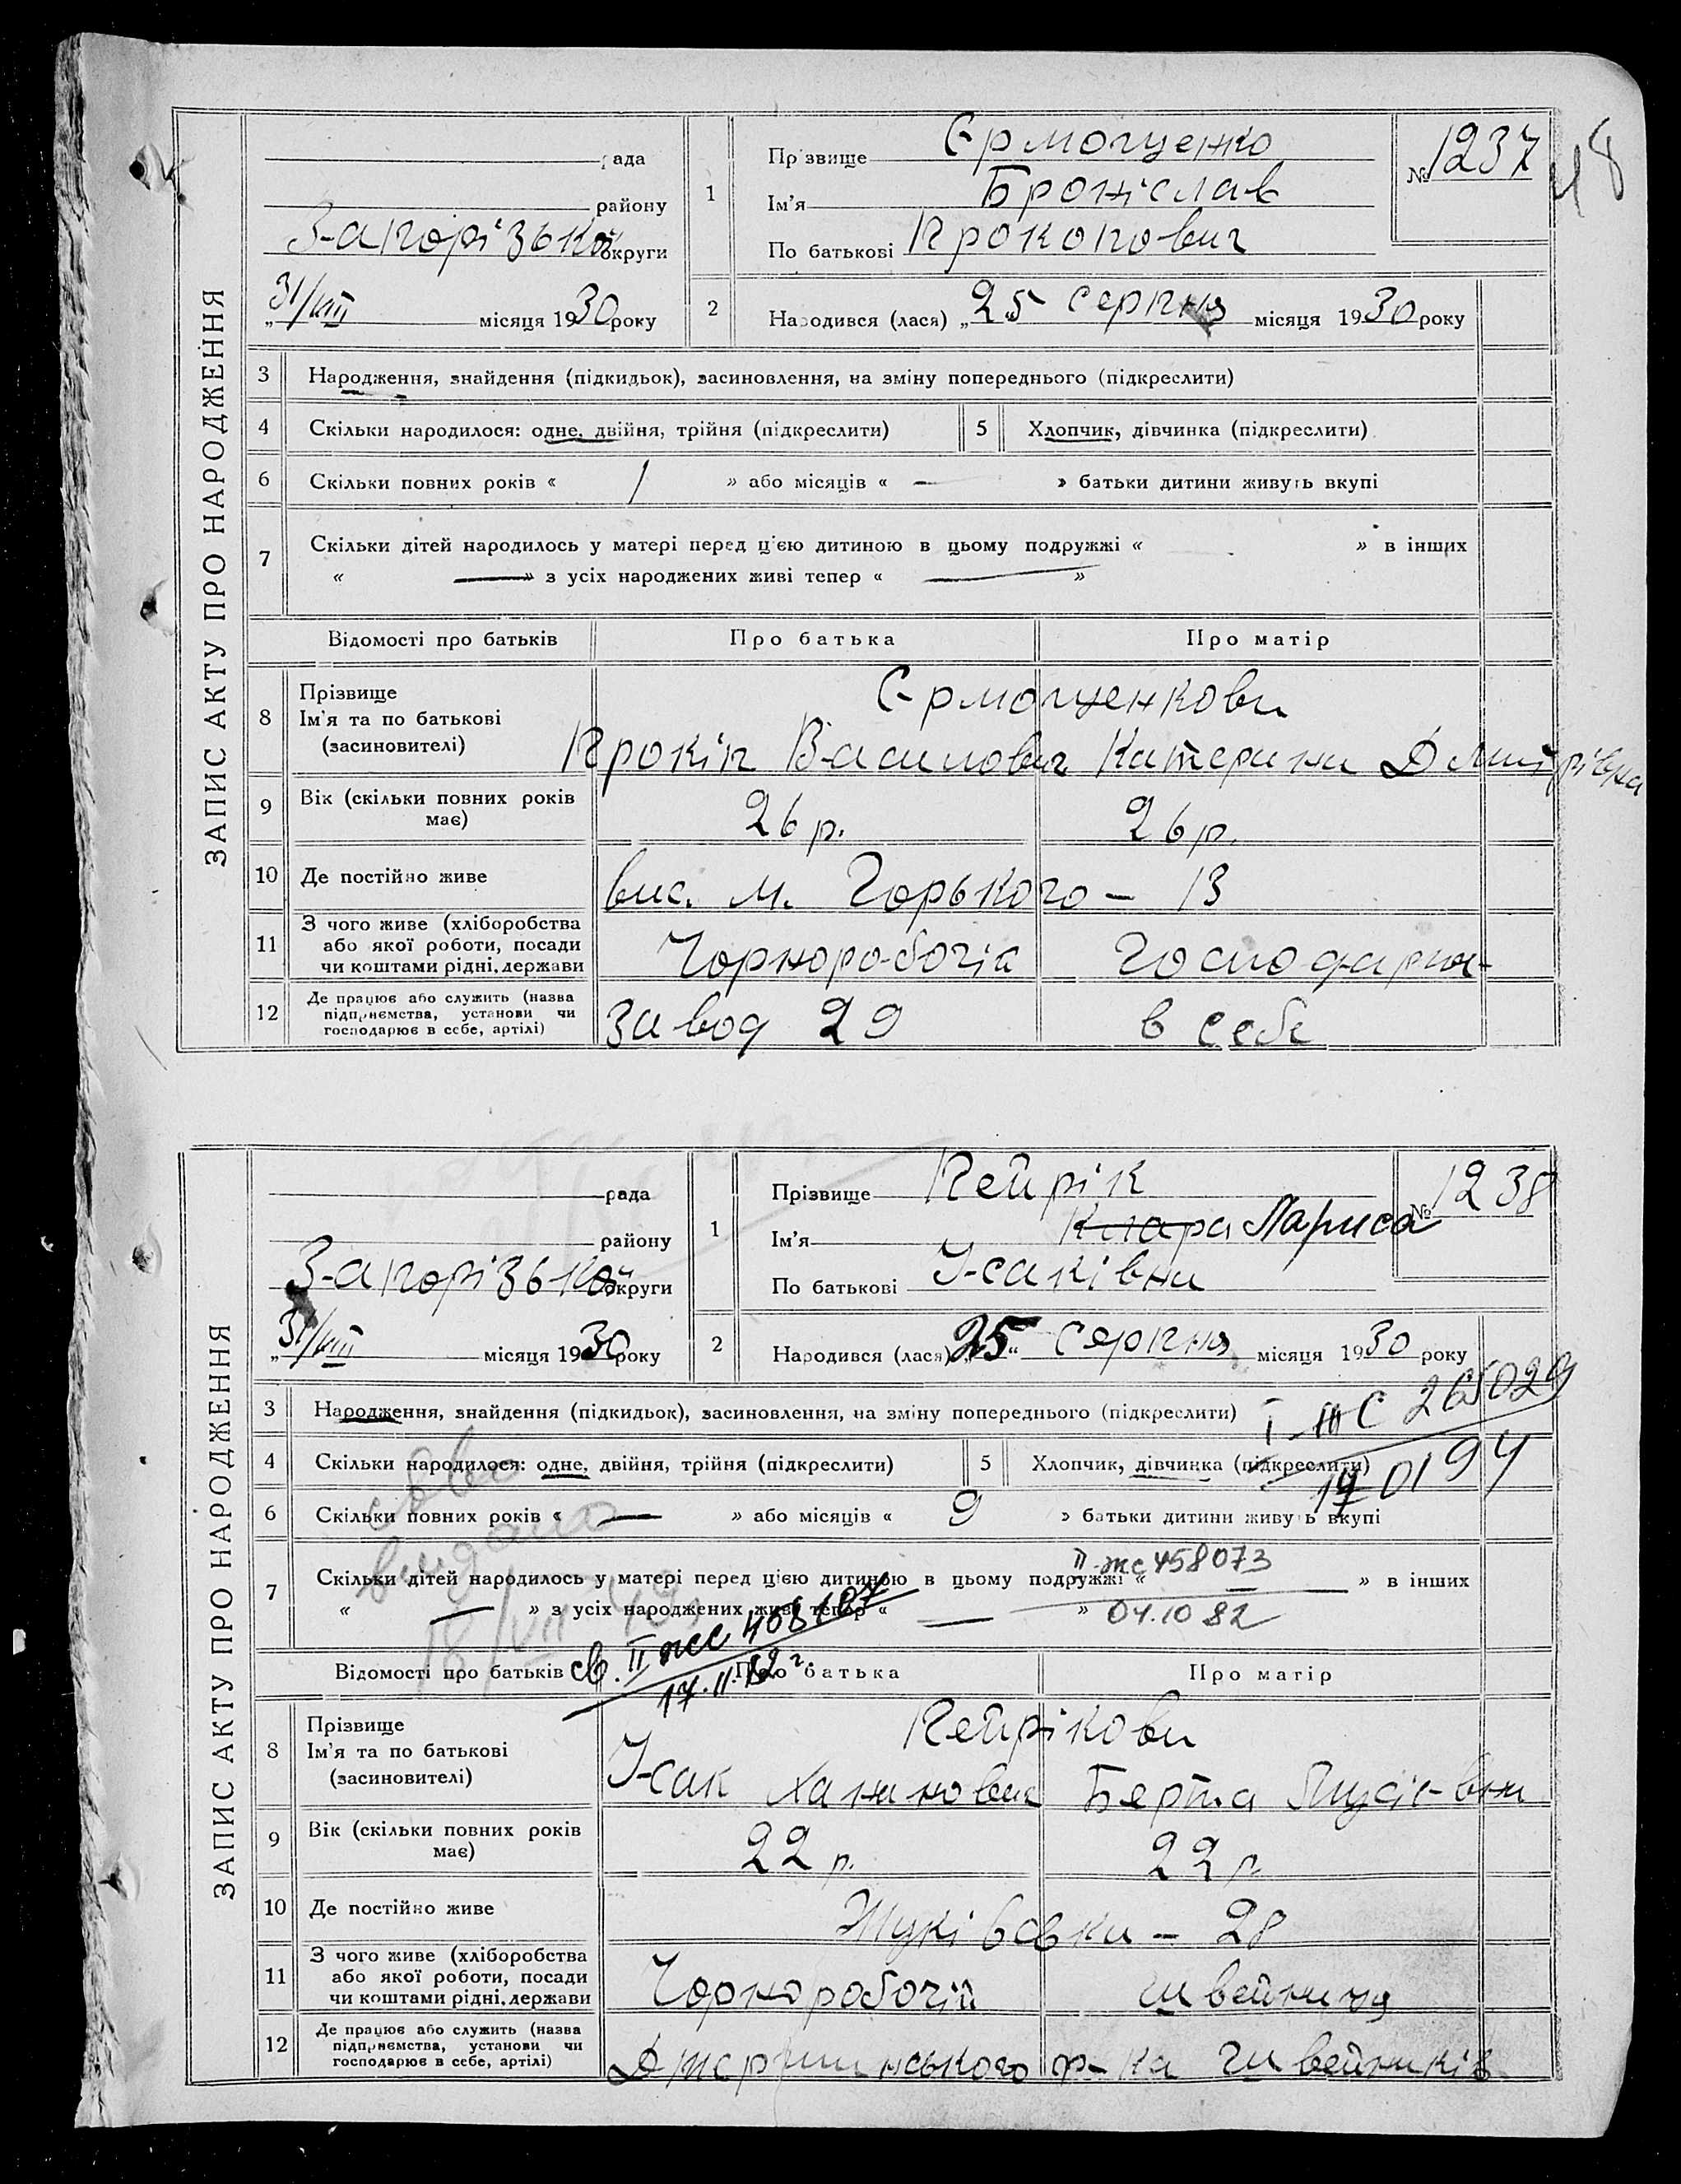 48
ЗАПИС АКТУ ПРО НАРОДЖЕННЯ
рада
району
Запорізької округи
„31/VIII місяця 1930 року
1 Прізвище Єрмощенко
Ім'я Броніслав
По батькові Прокопович
№ 1237
2 Народився (лася) „25“ серпня місяця 1930 року
3 Народження, знайдення (підкидьок), засиновлення, на зміну попереднього (підкреслити)
4 Скільки народилося: одне, двійня, трійня (підкреслити) 5 Хлопчик, дівчинка (підкреслити)
6 Скільки повних років « 1 » або місяців « — » батьки дитини живуть вкупі
7 Скільки дітей народилось у матері перед цією дитиною в цьому подружжі « » в інших
« — » з усіх народжених живі тепер « — »
Відомості про батьків Про батька Про матір
8 Прізвище
Ім'я та по батькові
(засиновителі)
Єрмощенкови
Прокіп Василович Катерина Дмитрівна
9 Вік (скільки повних років має) 26 р. 26 р.
10 Де постійно живе вис. М. Горького — 13
11 З чого живе (хліборобства
або якої роботи, посади
чи коштами рідні, держави
Чорноробочій Господарка
12 Де працює або служить (назва
підприємства, установи чи
господарює в себе, артілі)
Завод 29 в себе
ЗАПИС АКТУ ПРО НАРОДЖЕННЯ
рада
району
Запорізької округи
„31/VIII місяця 1930 року
1 Прізвище Пейрік
Ім'я Клара Лариса
По батькові Ісаківна
№ 1238
2 Народився (лася) „25“ серпня місяця 1930 року
3 Народження, знайдення (підкидьок), засиновлення, на зміну попереднього (підкреслити)
265029
4 Скільки народилося: одне, двійня, трійня (підкреслити) 5 Хлопчик, дівчинка (підкреслити)
0194
6 Скільки повних років « — » або місяців « 9 » батьки дитини живуть вкупі
видано
II-жс 458073
7 Скільки дітей народилось у матері перед цією дитиною в цьому подружжі « — » в інших
« — » з усіх народжених живі тепер « — »
04.10 82
св. II жс 408107
17.11.82 г.
Відомості про батьків Про батька Про матір
8 Прізвище
Ім'я та по батькові
(засиновителі)
Пейрікови
Ісак Хаимович Берта
9 Вік (скільки повних років має) 22 р. 22 р.
10 Де постійно живе Жуківської — 28
11 З чого живе (хліборобства
або якої роботи, посади
чи коштами рідні, держави
Чорноробочій швейниця
12 Де працює або служить (назва
підприємства, установи чи
господарює в себе, артілі)
Джержинського ф-ка швейників